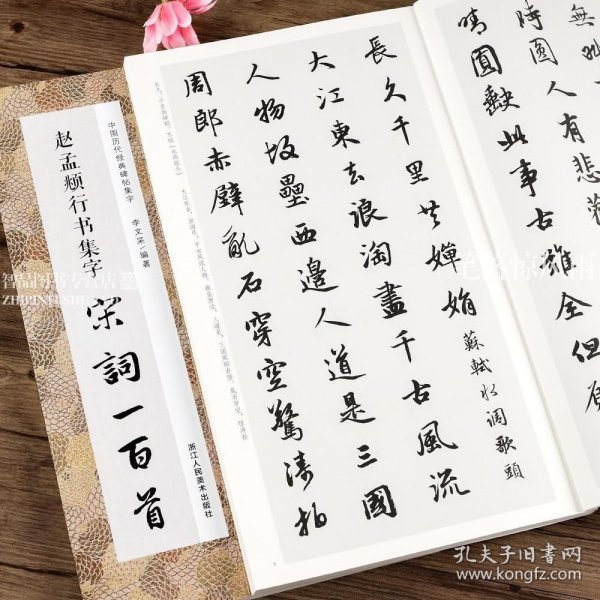 無
時圓人有悲
晴圓歝此事古難全但
長久千里共嬋娟 蘇軾水調歌頭
大江東去浪淘盡千古風流
人物故壘西邊人道是三國
周郎赤壁亂石穿空驚濤拍
中国历代经典碑帖集字 李文采/编著
赵孟頫行书集字
宋詞一百首
浙江人民美术出版社
ZHIPINXUSHU
孔夫子旧书网
www.kongfz.com